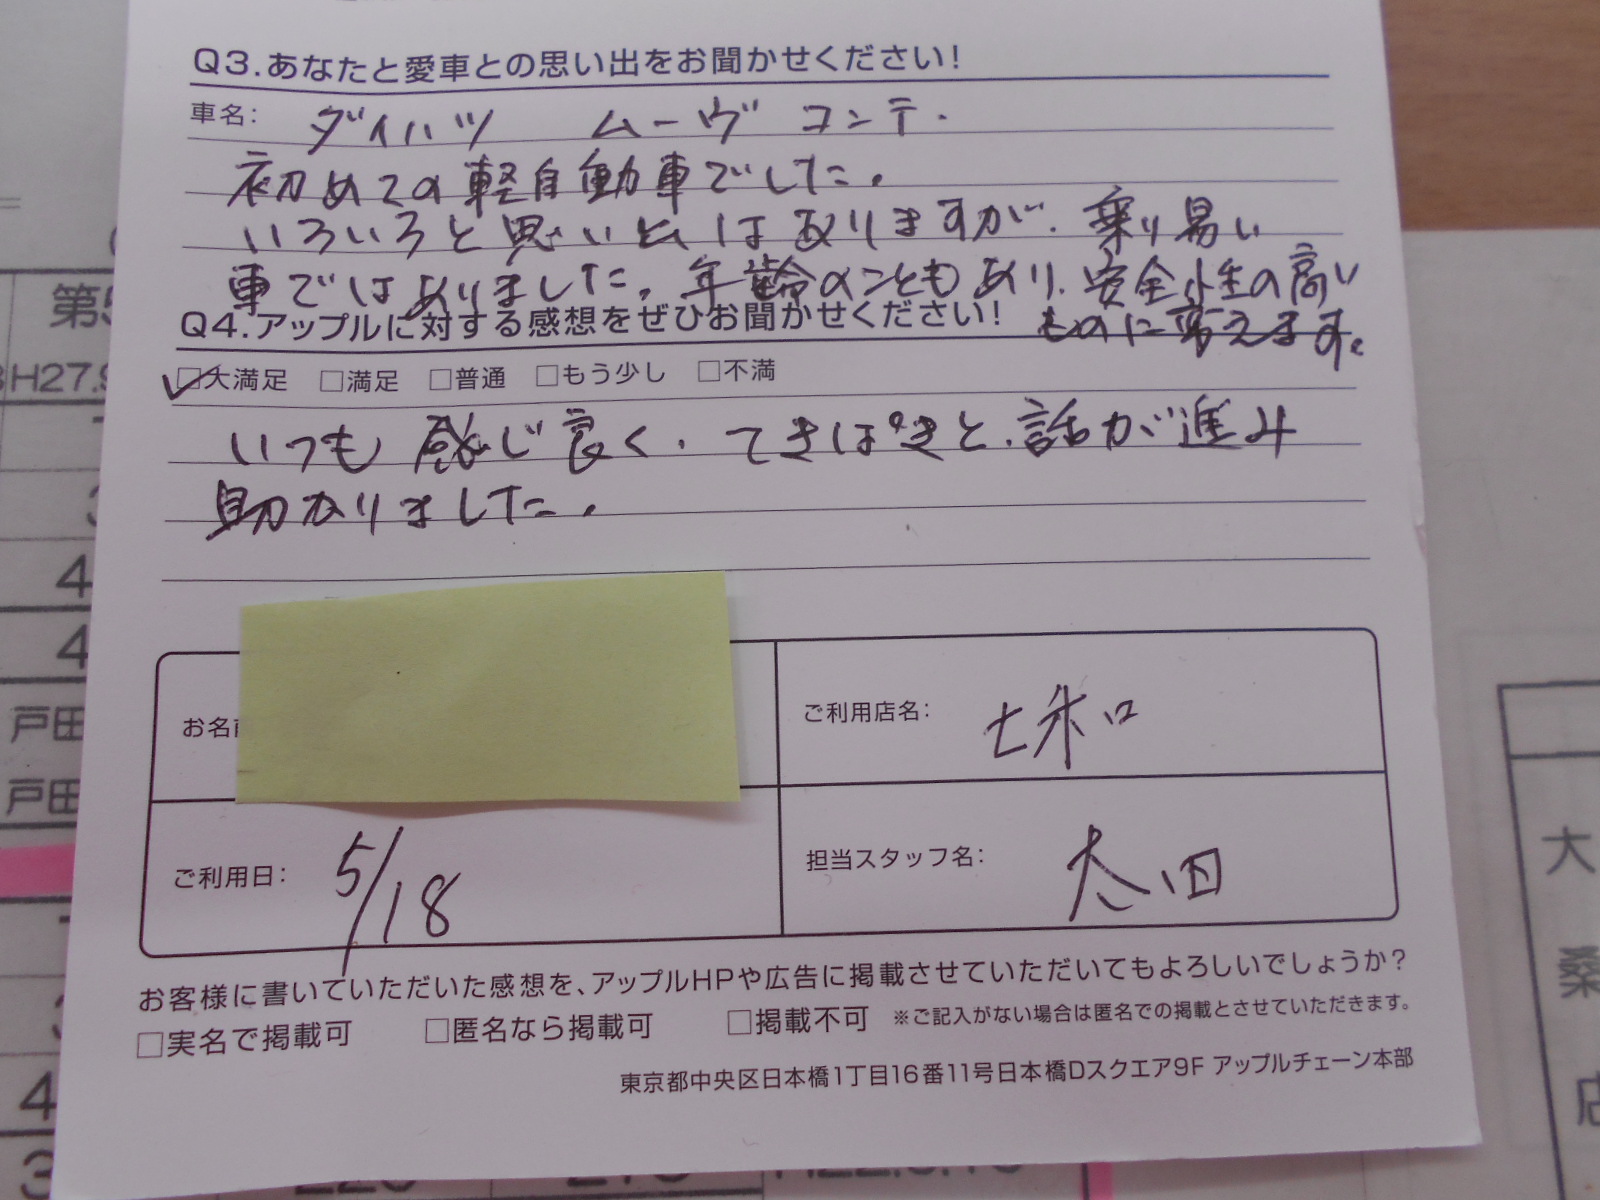 Q3.あなたと愛車との思い出をお聞かせください!
車名: ダイハツ ムーヴ コンテ.
初めての軽自動車でした。
いろいろと思い出はありますが、乗り易い
車ではありました。年齢のこともあり、安全性の高い
ものに変えます。
Q4.アップルに対する感想をぜひお聞かせください!
□大満足 □満足 □普通 □もう少し □不満
いつも感じ良く、てきぱきと、話が進み
助かりました。
お名前
ご利用店名:
ご利用日: 5/18
担当スタッフ名: 太田
お客様に書いていただいた感想を、アップルHPや広告に掲載させていただいてもよろしいでしょうか?
□実名で掲載可 □匿名なら掲載可 □掲載不可 ※ご記入がない場合は匿名での掲載とさせていただきます。
東京都中央区日本橋1丁目16番11号日本橋Dスクエア9F アップルチェーン本部
第5
H27.9
4
4
戸田
戸田
4
3
大
桑
店